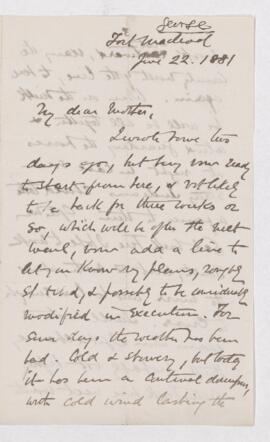 George
Fort Macleod
June 22. 1881
My dear Mother,
I wrote some two
days ago, but being now ready
to start from here, & not likely
to be back for three weeks or
so, which will be after the next
mail, now add a line to
let you know my plans, roughly
& possibly to be considerably
modified in execution. For
some days the weather has been
bad. Cold & showery, but today
it has been a continual downpour,
with cold wind lashing the